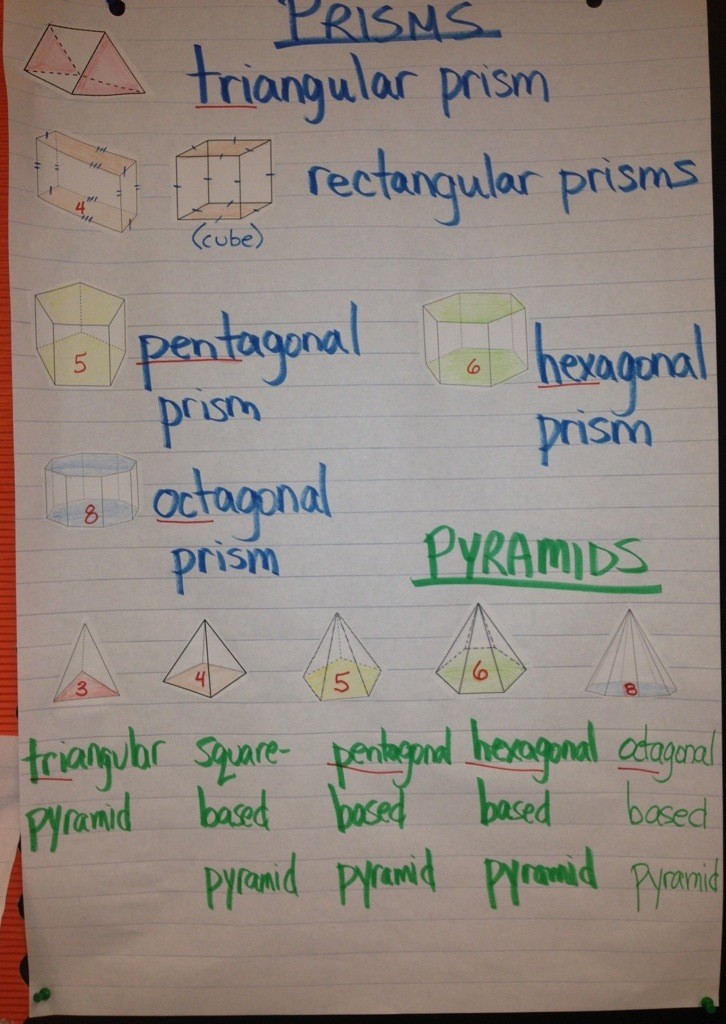 PRISMS
triangular prism
4
(cube)
rectangular prisms
5
pentagonal
prism
6
hexagonal
prism
8
octagonal
prism
PYRAMIDS
3 4 5 6 8
triangular square- pentagonal hexagonal octagonal
pyramid based based based based
pyramid pyramid pyramid pyramid